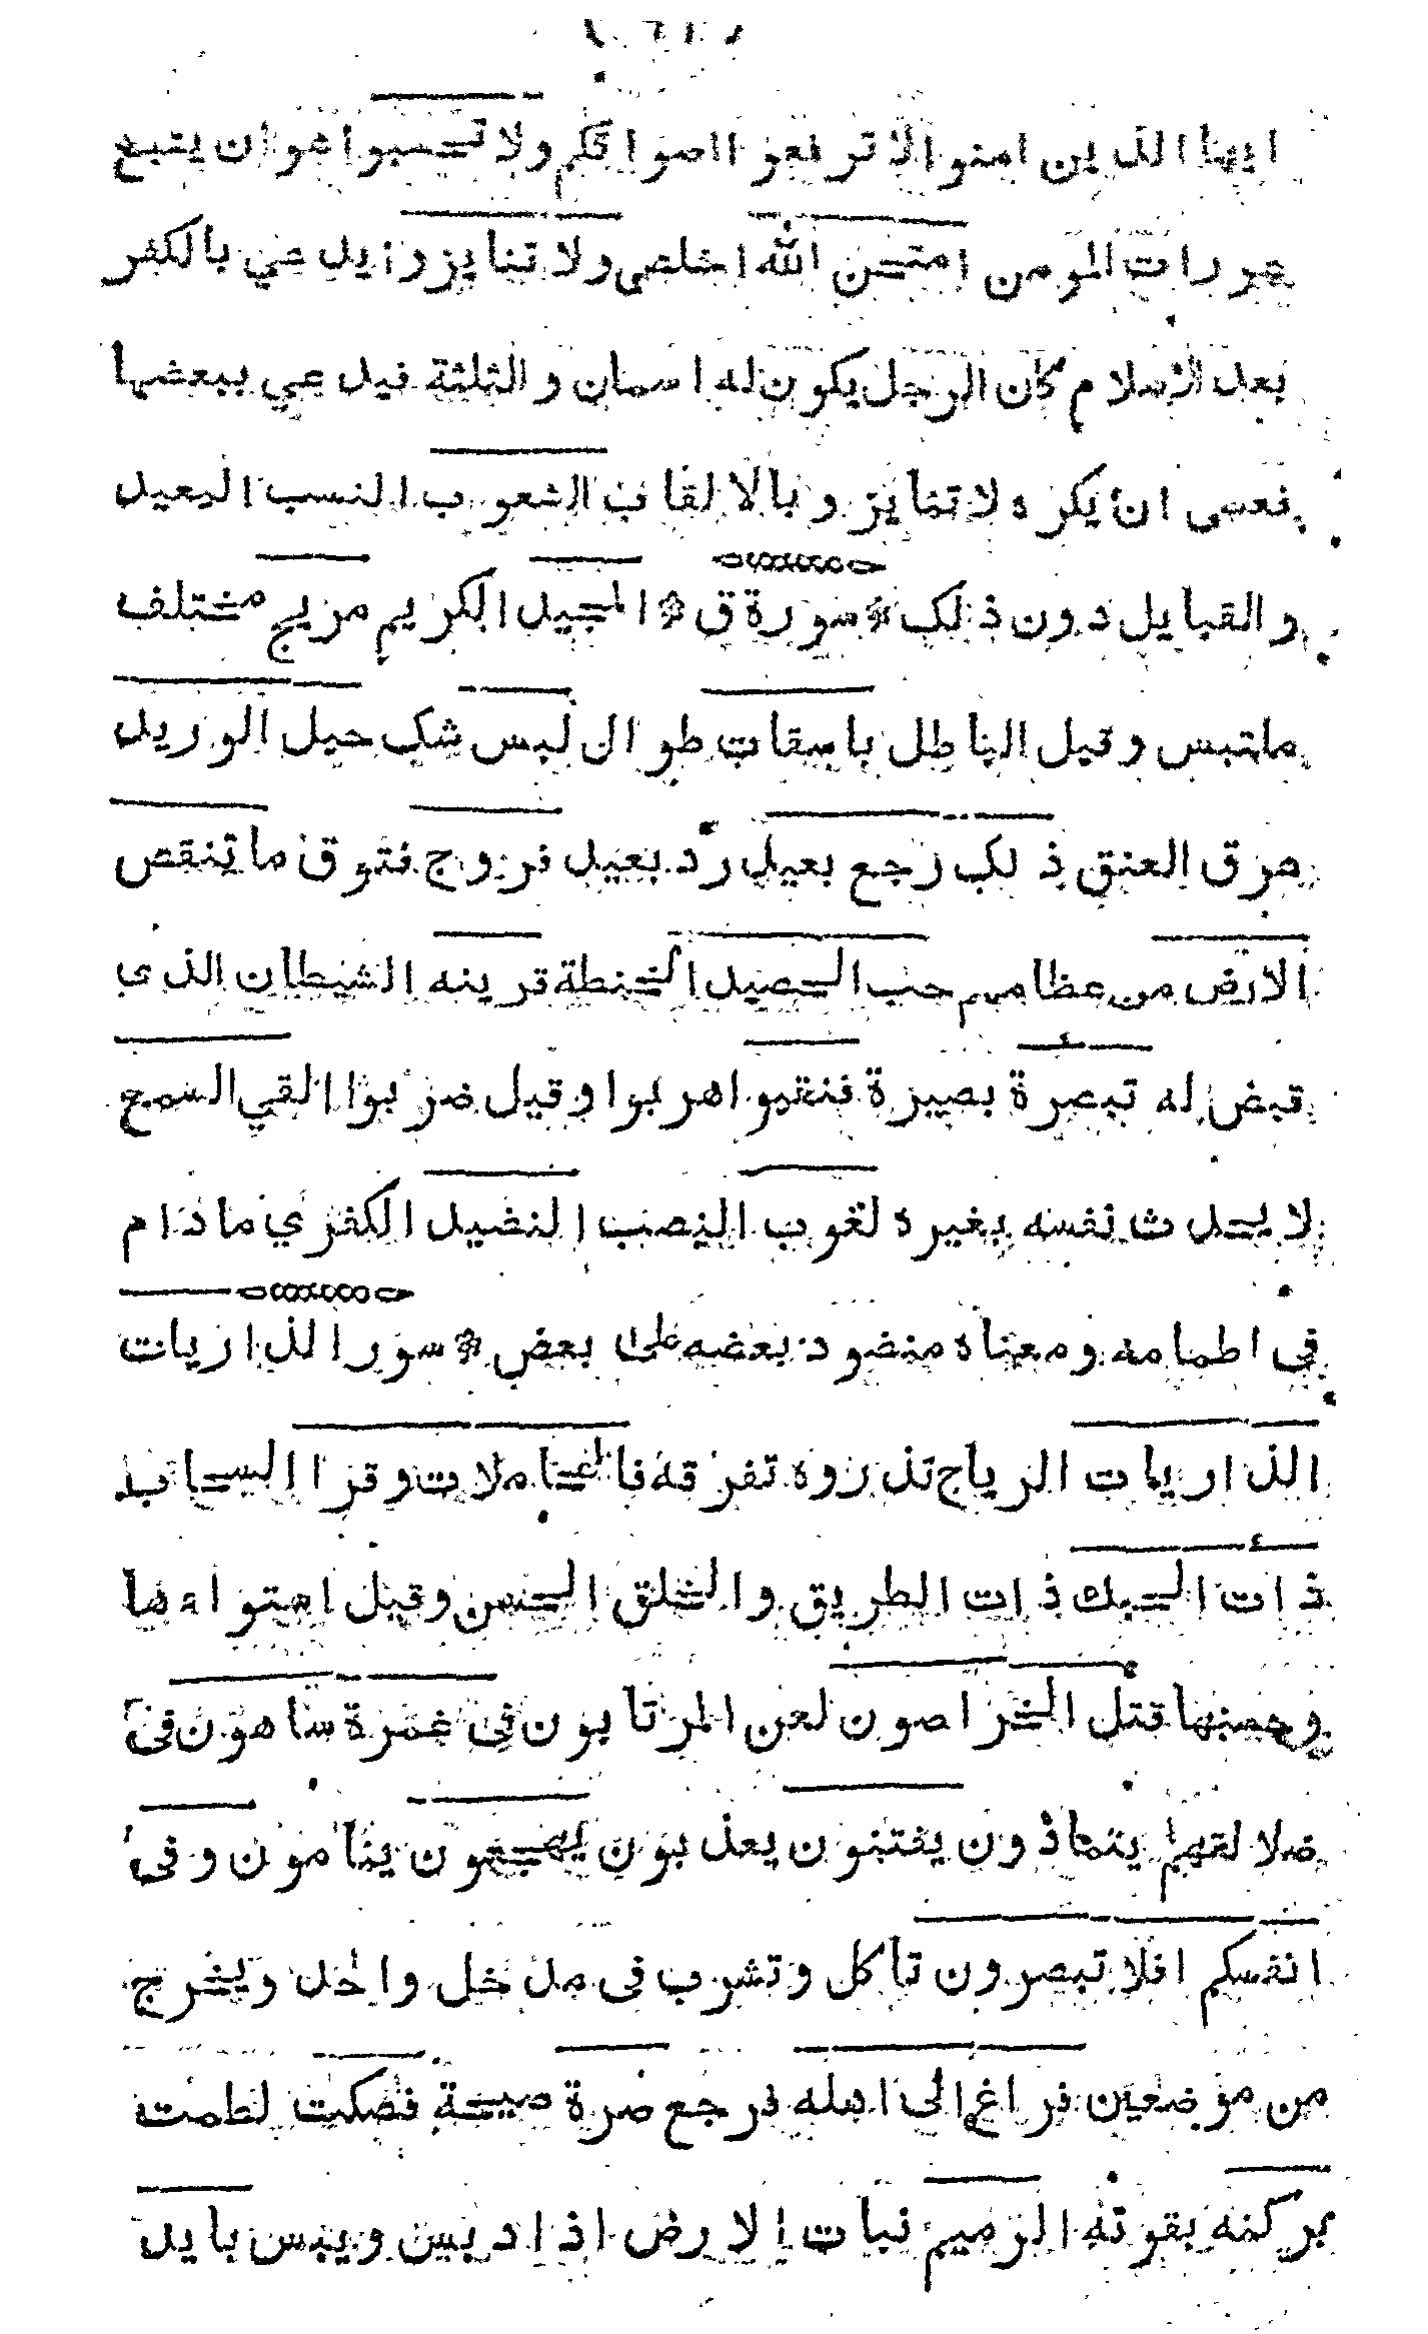 ايها الذين امنوا لا ترفعوا اصواتكم ولا تجسسوا هو ان يتبع
عورات المومن امتحن الله اخلص ولا تنابزوا يدعي بالكفر
بعد الاسلام كان الرجل يكون له اسمان والثلثة فيدعي ببعضها
فعسى ان يكره لا تنابزوا بالالقاب الشعوب النسب البعيد
والقبايل دون ذلك سورة ق المجيد الكريم مريج مختلف
ملتبس وقيل الباطل باسقات طوال لبس شك حبل الوريد
عرق العنق ذلك رجع بعيد رد بعيد فروج فتوق ما تنقص
الارض من عظامهم حب الحصيد الحنطة قرينه الشيطان الذي
قيض له تبصرة بصيرة فنقبوا هربوا وقيل ضربوا القي السمع
لا يحدث نفسه بغيره لغوب النصب النضيد الكفري ما دام
في اكمامه ومعناه منضود بعضه على بعض سورا لذاريات
الذاريات الرياح تذروه تفرقه فالحاملات وقرا السحاب
ذات الحبك ذات الطريق والخلق الحسن وقيل استواءها
وحسنها قتل الخراصون لعن المرتابون في غمرة ساهون في
ضلالتهم يتمادون يفتنون يعذبون يهجعون ينامون وفي
انفسكم افلا تبصرون تاكل وتشرب في مدخل واحد ويخرج
من موضعين فراغ الى اهله فرجع صرة صيحة فصكت لطمت
بركنه بقوته الرميم نبات الارض اذا ديس ويبس بايد